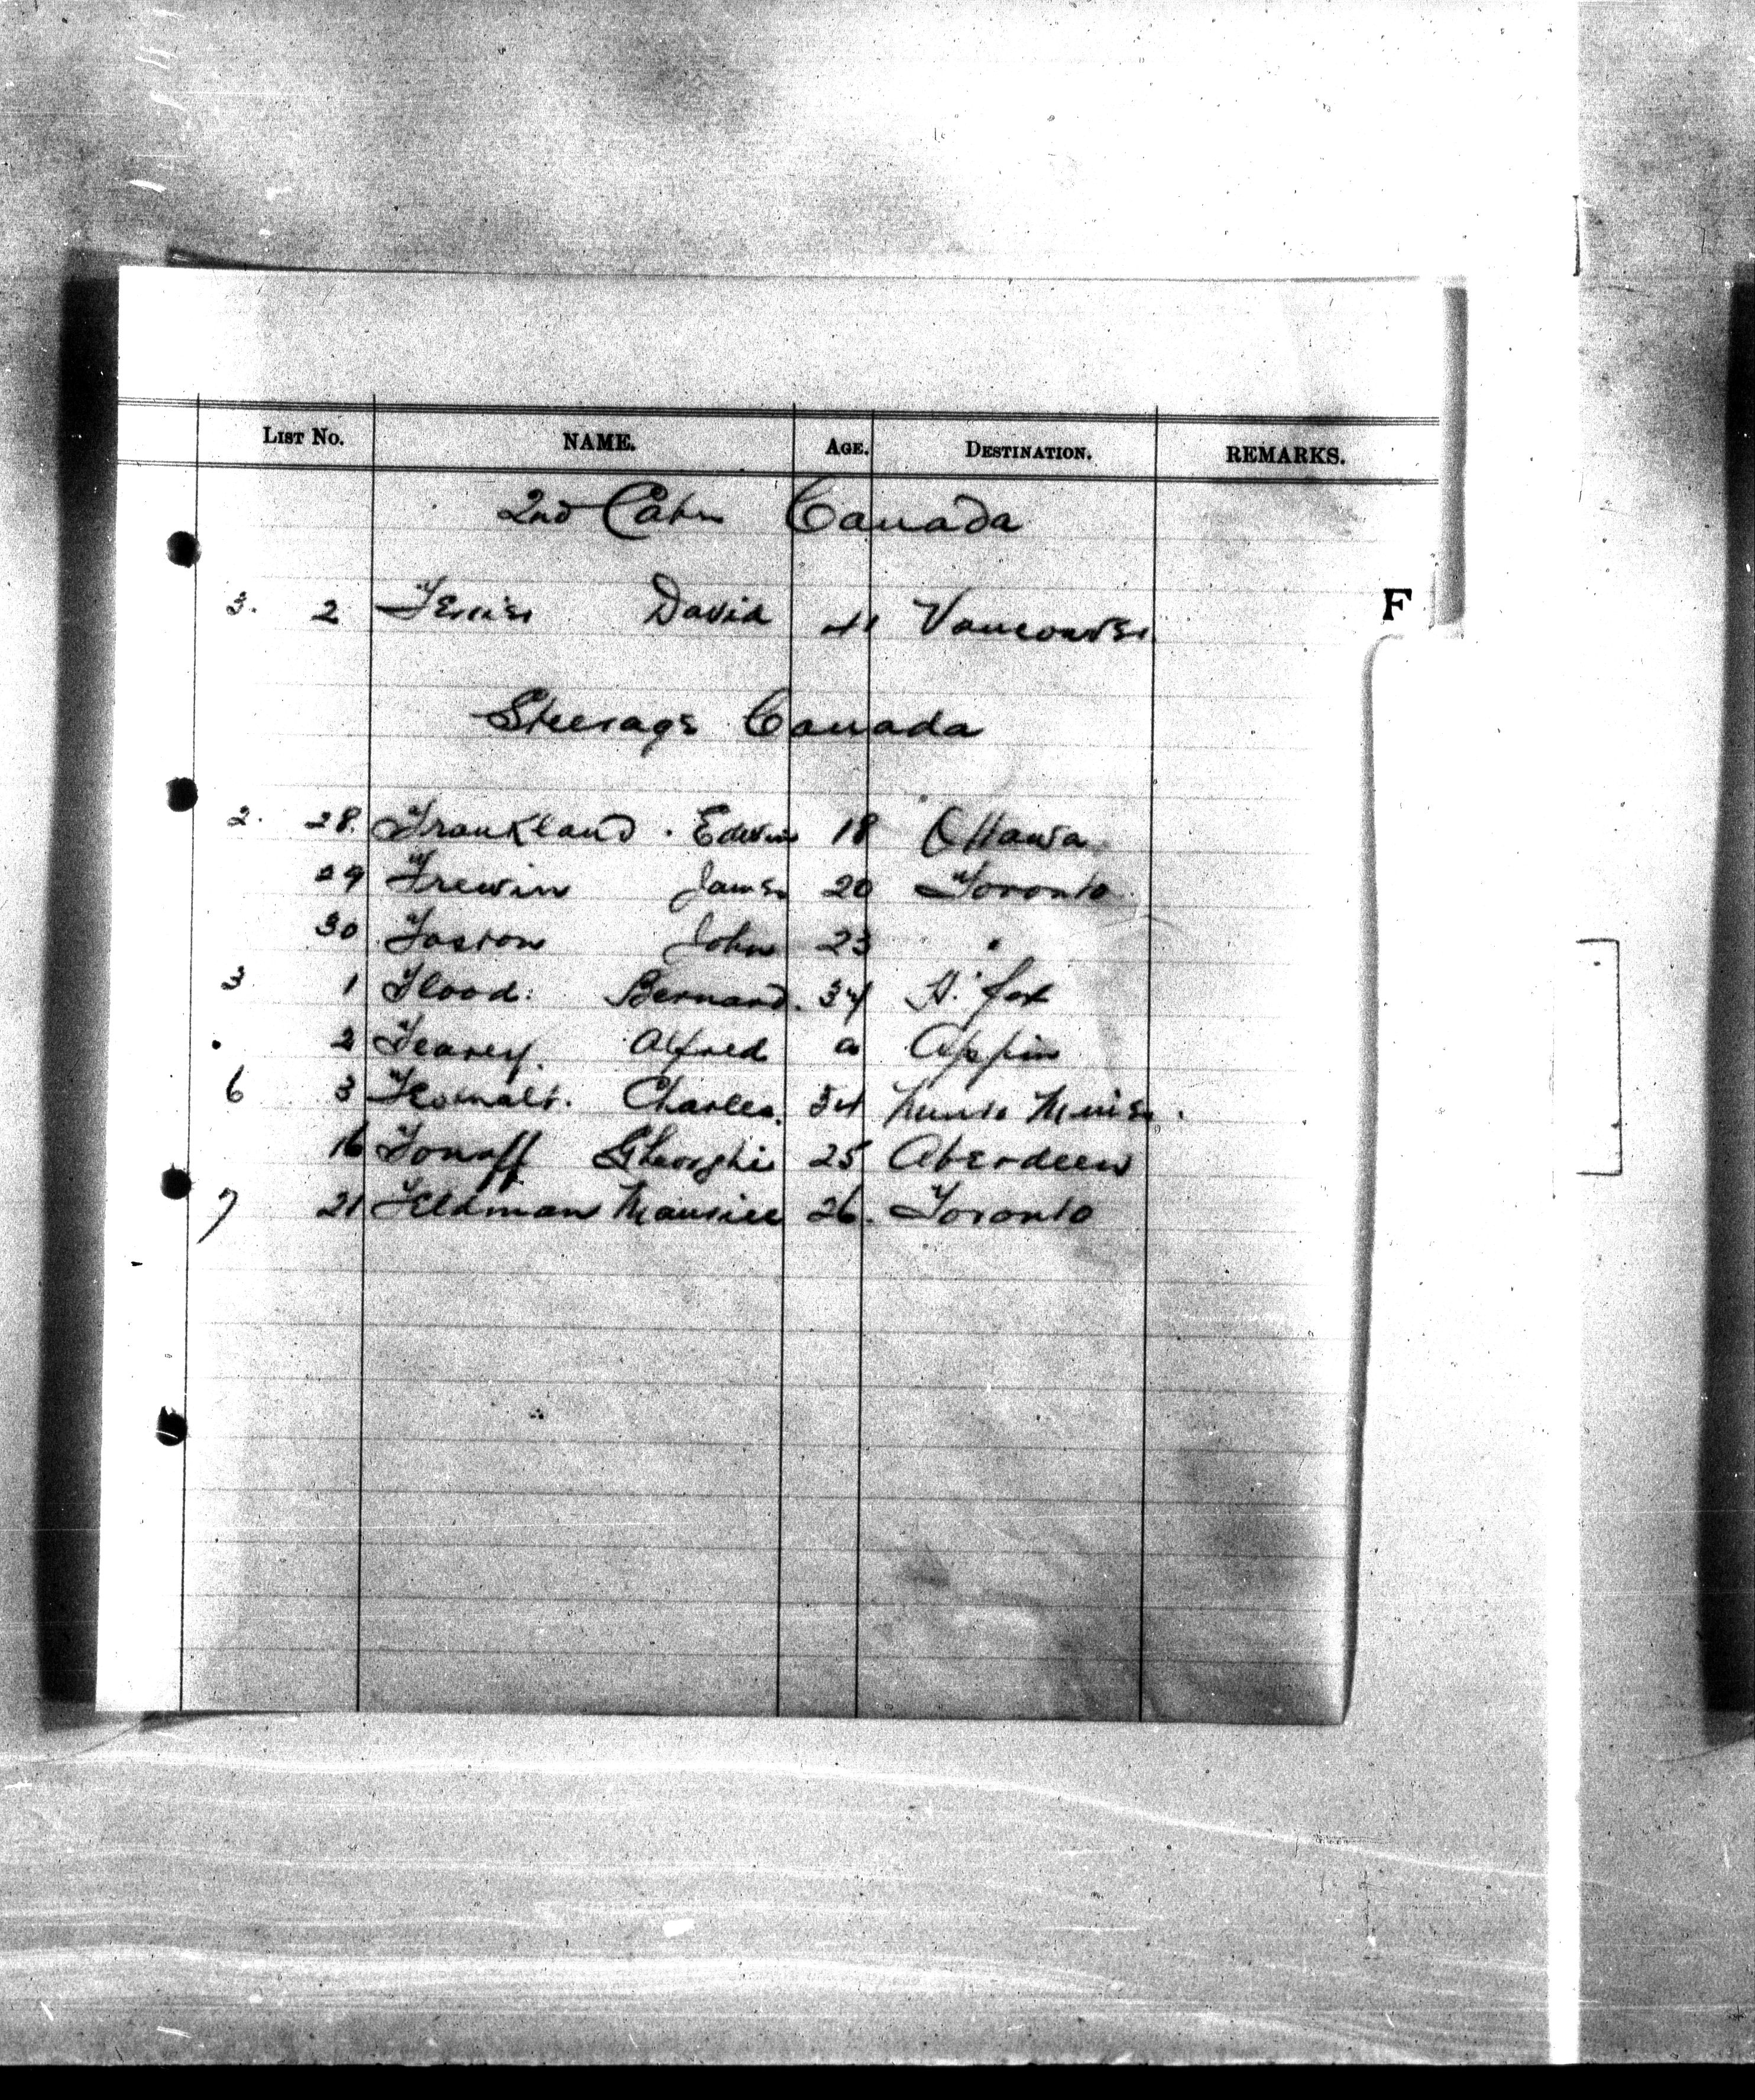 LIST No. NAME. AGE. DESTINATION. REMARKS.
2nd Cabin Canada
3. 2 Ferrier David 41 Vancouver
F
Steerage Canada
2. 28. Frankland. Edwin 18 Ottawa
29 Frewin James 20 Toronto
30 Foston John 23 "
3 1 Flood. Bernard. 34 H. fax
2 Fearey Alfred a Appin
6 3 Charles. 34
16 Fonoff Gheorghi 25 Aberdeen
7 21 Feldman Maurice 26. Toronto